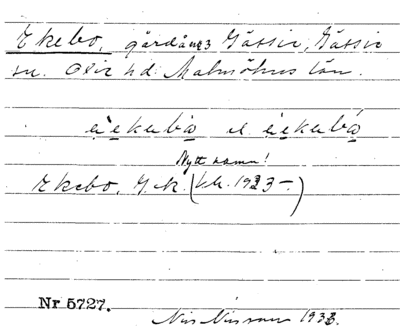 Ekebo, gård å nº 3 Gässie, Gässie
sn. Oxie hd. Malmöhus län.
el.
Nytt namn!
Ekebo, G.K. (bl. 1923–)
Nr 5727.
Nils Nilsson 1933.